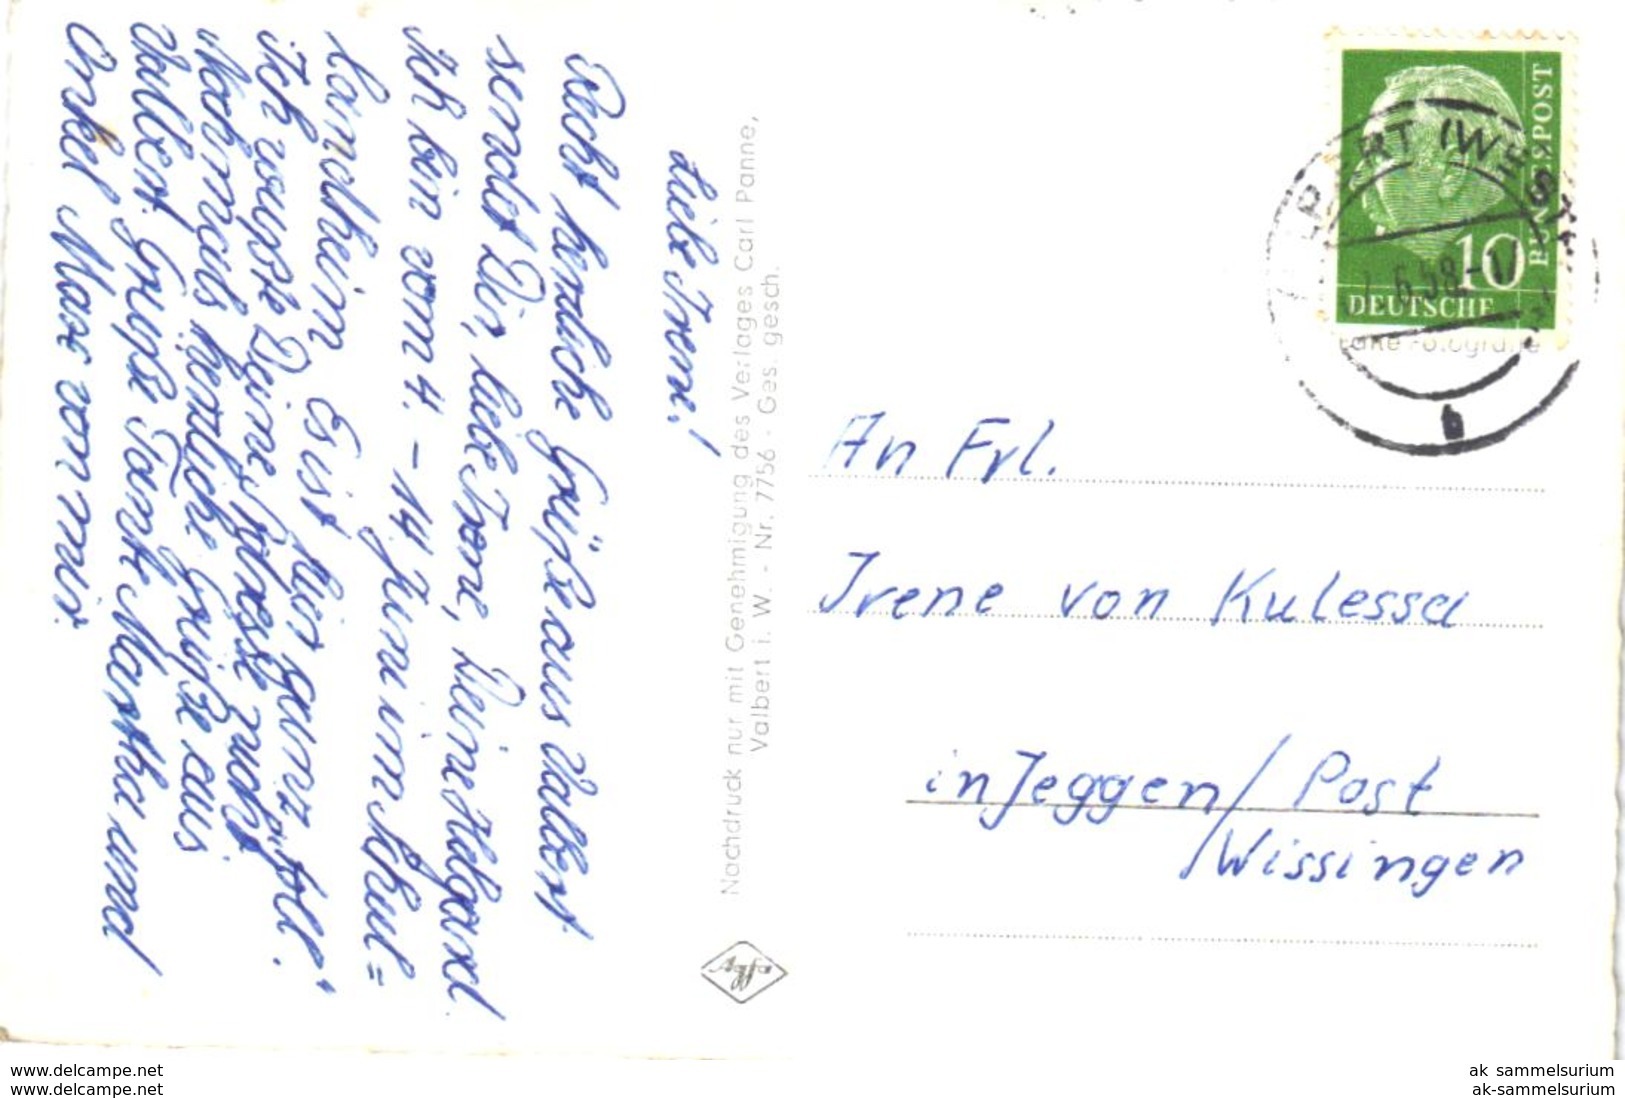 Liebe Irene!
Recht herzliche Grüße aus Valbert
sendet Dir, liebe Irene, Deine Helgard
Ich bin vom 4. - 14. Juni im Schul=
landheim Es ist hier ganz toll.
Ich wußte Deine Adresse nicht.
Nochmals herzliche Grüße aus
Valbert. Grüße Tante Martha und
Onkel Max von mir.
Nachdruck nur mit Genehmigung des Verlages Carl Panne,
Valbert i. W. - Nr. 7756 - Ges. gesch.
Agfa
10
DEUTSCHE
BUNDESPOST
6.58.-17
b
An Frl.
Irene von Kulessa
in Jeggen / Post
Wissingen
www.delcampe.net
www.delcampe.net
ak_sammelsurium
ak-sammelsurium